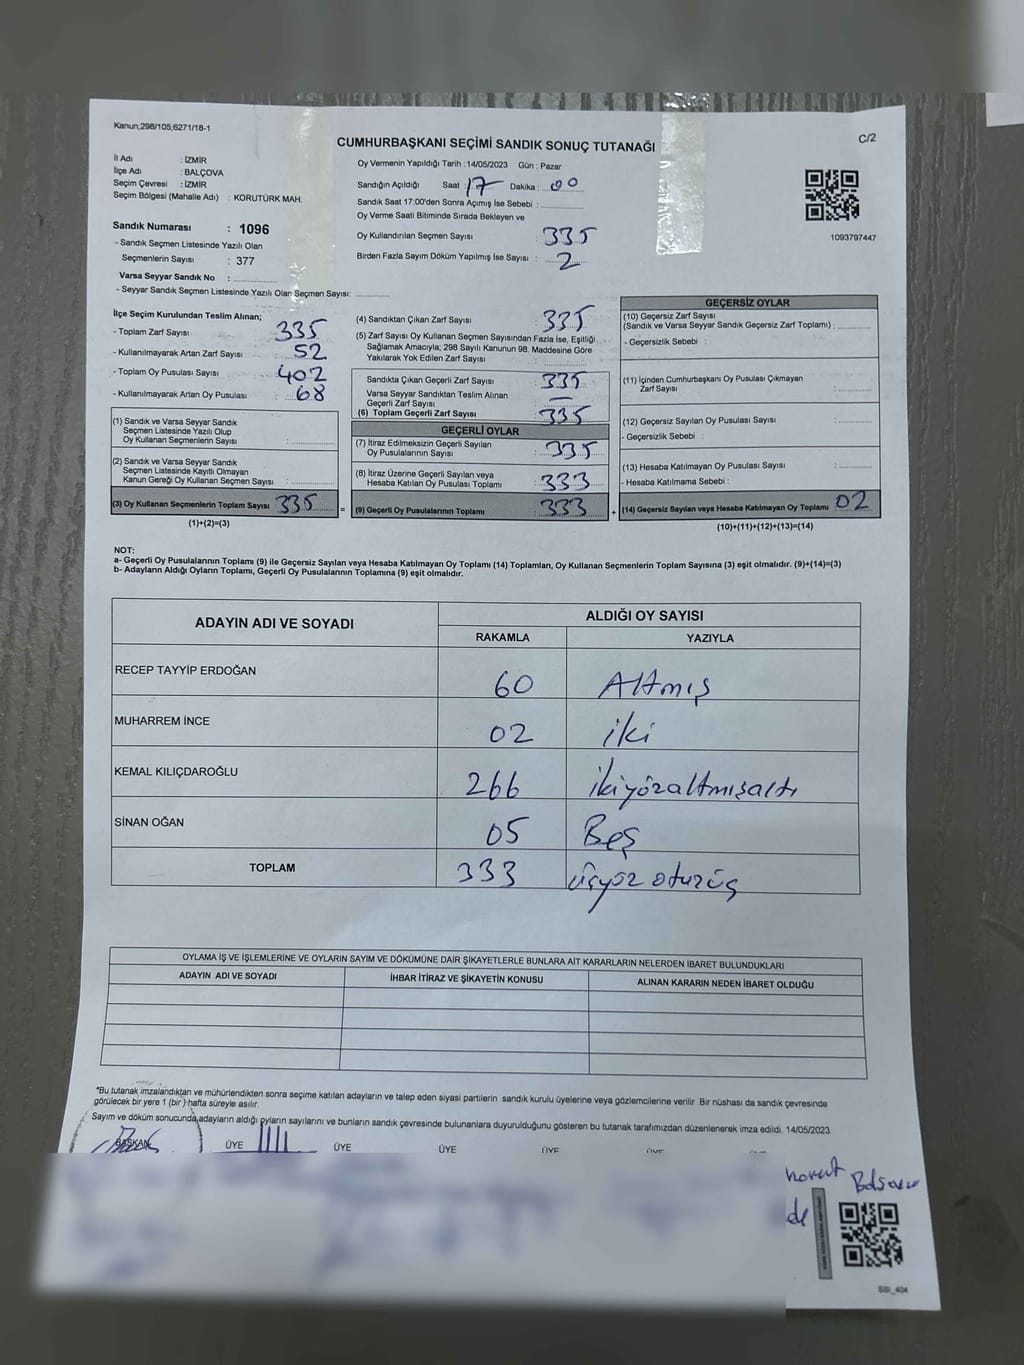 Kanun;298/105,6271/18-1
C/2
CUMHURBAŞKANI SEÇİMİ SANDIK SONUÇ TUTANAĞI
İl Adı : İZMİR
İlçe Adı : BALÇOVA
Seçim Çevresi : İZMİR
Seçim Bölgesi (Mahalle Adı) : KORUTÜRK MAH.
Sandık Numarası : 1096
- Sandık Seçmen Listesinde Yazılı Olan
Seçmenlerin Sayısı : 377
Varsa Seyyar Sandık No :
- Seyyar Sandık Seçmen Listesinde Yazılı Olan Seçmen Sayısı:
Oy Vermenin Yapıldığı Tarih :14/05/2023 Gün : Pazar
Sandığın Açıldığı Saat : 17 Dakika : 00
Sandık Saat 17:00'den Sonra Açımış İse Sebebi :
Oy Verme Saati Bitiminde Sırada Bekleyen ve
Oy Kullandırılan Seçmen Sayısı : 335
Birden Fazla Sayım Döküm Yapılmış İse Sayısı : 2
1093797447
İlçe Seçim Kurulundan Teslim Alınan;
- Toplam Zarf Sayısı : 335
- Kullanılmayarak Artan Zarf Sayısı : 52
- Toplam Oy Pusulası Sayısı : 402
- Kullanılmayarak Artan Oy Pusulası : 68
(1) Sandık ve Varsa Seyyar Sandık
Seçmen Listesinde Yazılı Olup
Oy Kullanan Seçmenlerin Sayısı :
(2) Sandık ve Varsa Seyyar Sandık
Seçmen Listesinde Kayıtlı Olmayan
Kanun Gereği Oy Kullanan Seçmen Sayısı :
(3) Oy Kullanan Seçmenlerin Toplam Sayısı 335
(1)+(2)=(3)
(4) Sandıktan Çıkan Zarf Sayısı : 335
(5) Zarf Sayısı Oy Kullanan Seçmen Sayısından Fazla İse, Eşitliği
Sağlamak Amacıyla; 298 Sayılı Kanunun 98. Maddesine Göre
Yakılarak Yok Edilen Zarf Sayısı :
Sandıkta Çıkan Geçerli Zarf Sayısı : 335
Varsa Seyyar Sandıktan Teslim Alınan
Geçerli Zarf Sayısı : —
(6) Toplam Geçerli Zarf Sayısı : 335
GEÇERLİ OYLAR
(7) İtiraz Edilmeksizin Geçerli Sayılan
Oy Pusulalarının Sayısı : 335
(8) İtiraz Üzerine Geçerli Sayılan veya
Hesaba Katılan Oy Pusulası Toplamı : 333
=
(9) Geçerli Oy Pusulalarının Toplamı : 333
+
GEÇERSİZ OYLAR
(10) Geçersiz Zarf Sayısı
(Sandık ve Varsa Seyyar Sandık Geçersiz Zarf Toplamı) :
- Geçersizlik Sebebi :
(11) İçinden Cumhurbaşkanı Oy Pusulası Çıkmayan
Zarf Sayısı :
(12) Geçersiz Sayılan Oy Pusulası Sayısı :
- Geçersizlik Sebebi :
(13) Hesaba Katılmayan Oy Pusulası Sayısı :
- Hesaba Katılmama Sebebi :
(14) Geçersiz Sayılan veya Hesaba Katılmayan Oy Toplamı 02
(10)+(11)+(12)+(13)=(14)
NOT:
a- Geçerli Oy Pusulalarının Toplamı (9) ile Geçersiz Sayılan veya Hesaba Katılmayan Oy Toplamı (14) Toplamları, Oy Kullanan Seçmenlerin Toplam Sayısına (3) eşit olmalıdır. (9)+(14)=(3)
b- Adayların Aldığı Oyların Toplamı, Geçerli Oy Pusulalarının Toplamına (9) eşit olmalıdır.
ADAYIN ADI VE SOYADI
ALDIĞI OY SAYISI
RAKAMLA YAZIYLA
RECEP TAYYİP ERDOĞAN 60 Altmış
MUHARREM İNCE 02 iki
KEMAL KILIÇDAROĞLU 266 ikiyözaltmışaltı
SİNAN OĞAN 05 Beş
TOPLAM 333 üçyöz otuzüç
OYLAMA İŞ VE İŞLEMLERİNE VE OYLARIN SAYIM VE DÖKÜMÜNE DAİR ŞİKAYETLERLE BUNLARA AİT KARARLARIN NELERDEN İBARET BULUNDUKLARI
ADAYIN ADI VE SOYADI İHBAR İTİRAZ VE ŞİKAYETİN KONUSU ALINAN KARARIN NEDEN İBARET OLDUĞU
*Bu tutanak imzalandıktan ve mühürlendikten sonra seçime katılan adayların ve talep eden siyasi partilerin sandık kurulu üyelerine veya gözlemcilerine verilir. Bir nüshası da sandık çevresinde
görülecek bir yere 1 (bir) hafta süreyle asılır.
Sayım ve döküm sonucunda adayların aldığı oyların sayılarını ve bunların sandık çevresinde bulunanlara duyurulduğunu gösteren bu tutanak tarafımızdan düzenlenerek imza edildi. 14/05/2023
BAŞKAN ÜYE ÜYE ÜYE ÜYE ÜYE
de
SSI_404